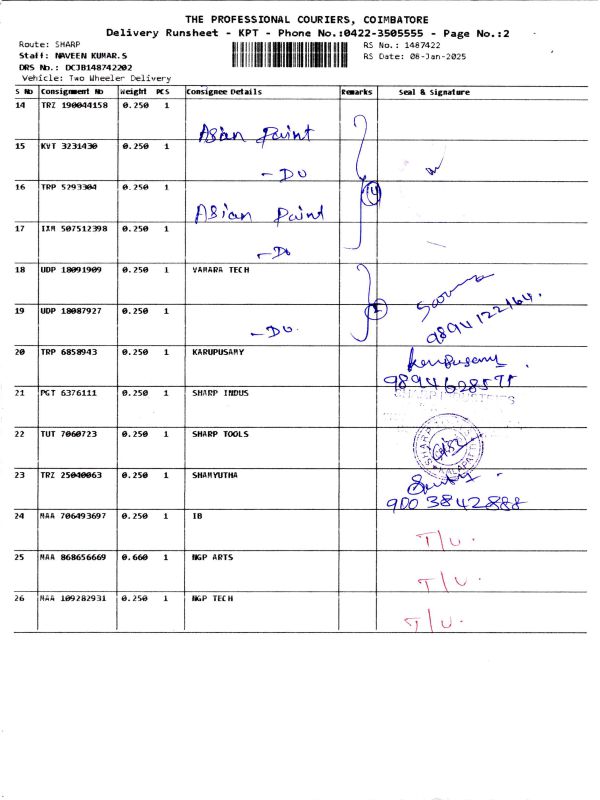 THE PROFESSIONAL COURIERS, COIMBATORE
Delivery Runsheet - KPT - Phone No.:0422-3505555 - Page No.:2
Route: SHARP RS No.: 1487422
Staff: NAVEEN KUMAR.S RS Date: 08-Jan-2025
DRS No.: DCJB148742202
Vehicle: Two Wheeler Delivery
S No Consignment No Weight PCS Consignee Details Remarks Seal & Signature
14 TRZ 190044158 0.250 1 Asian Paint
15 KVT 3231430 0.250 1 - Do
16 TRP 5293304 0.250 1 Asian Paint 4
17 IXM 507512398 0.250 1 - Do
18 UDP 18091909 0.250 1 VAMARA TECH
19 UDP 18087927 0.250 1 - Do. 2 9894122164.
20 TRP 6858943 0.250 1 KARUPUSAMY Karupusamy
21 PGT 6376111 0.250 1 SHARP INDUS SHARP INDUSTRIES
22 TUT 7060723 0.250 1 SHARP TOOLS SHARP
23 TRZ 25040063 0.250 1 SHAMYUTHA 9003842888
24 MAA 706493697 0.250 1 IB T/U.
25 MAA 868656669 0.660 1 NGP ARTS T/U.
26 MAA 109282931 0.250 1 NGP TECH T/U.